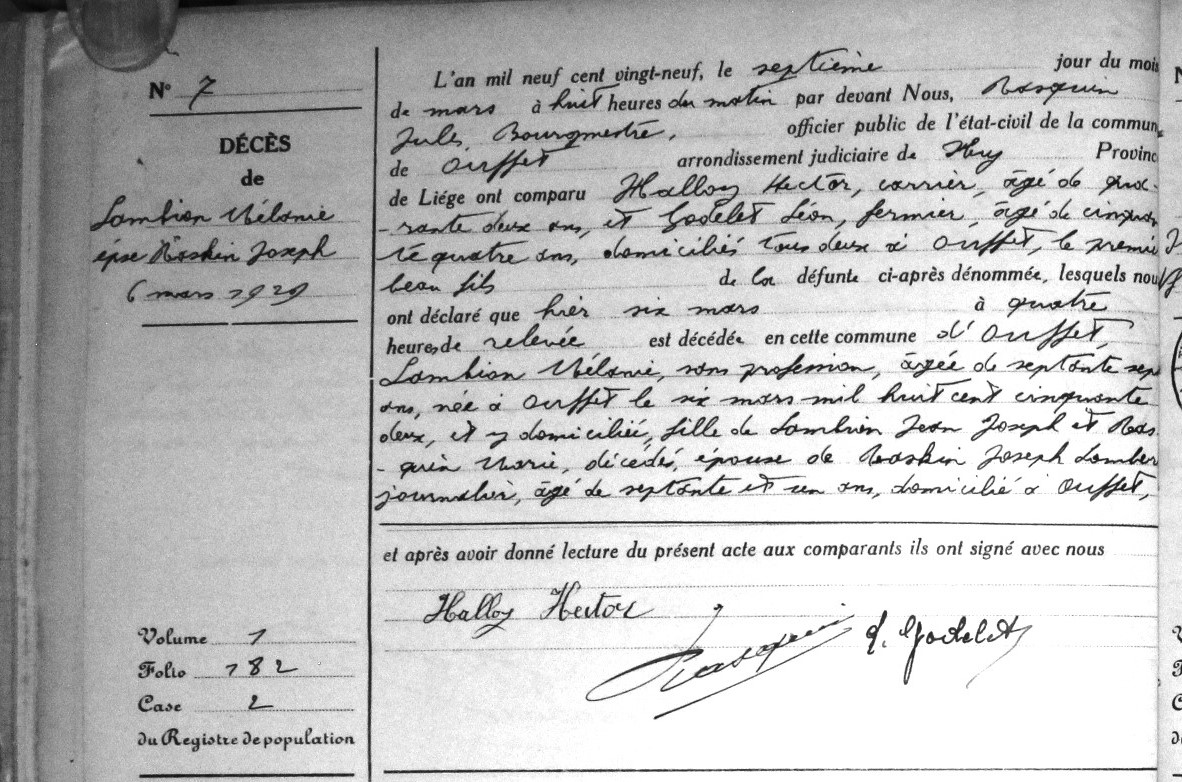 N° 7
DÉCÈS
de
Lambion Mélanie
épse Raskin Joseph
6 mars 1929
L'an mil neuf cent vingt-neuf, le septième jour du mois
de mars à huit heures du matin par devant Nous, Rasquin
Jules, Bourgmestre, officier public de l'état-civil de la commun
de Ouffet arrondissement judiciaire de Huy Provinc
de Liége ont comparu Halloy Hector, carrier, âgé de qua-
-rante deux ans, et Godelet Léon, fermier âgé de cinquan
te quatre ans, domiciliés tous deux à Ouffet, le premie
beau fils de la défunte ci-après dénommée, lesquels nou
ont déclaré que hier six mars à quatre
heures de relevée est décédée en cette commune d'Ouffet,
Lambion Mélanie, sans profession, âgée de septante sep
ans, née à Ouffet le six mars mil huit cent cinquante
deux, et y domiciliée, fille de Lambion Jean Joseph et Ras
-quin Marie, décédés, épouse de Raskin Joseph Lamber
journalier, âgé de septante et un ans, domicilié à Ouffet,
et après avoir donné lecture du présent acte aux comparants ils ont signé avec nous
Halloy Hector
Rasquin
L. Godelet
Volume 1
Folio 182
Case 2
du Registre de population